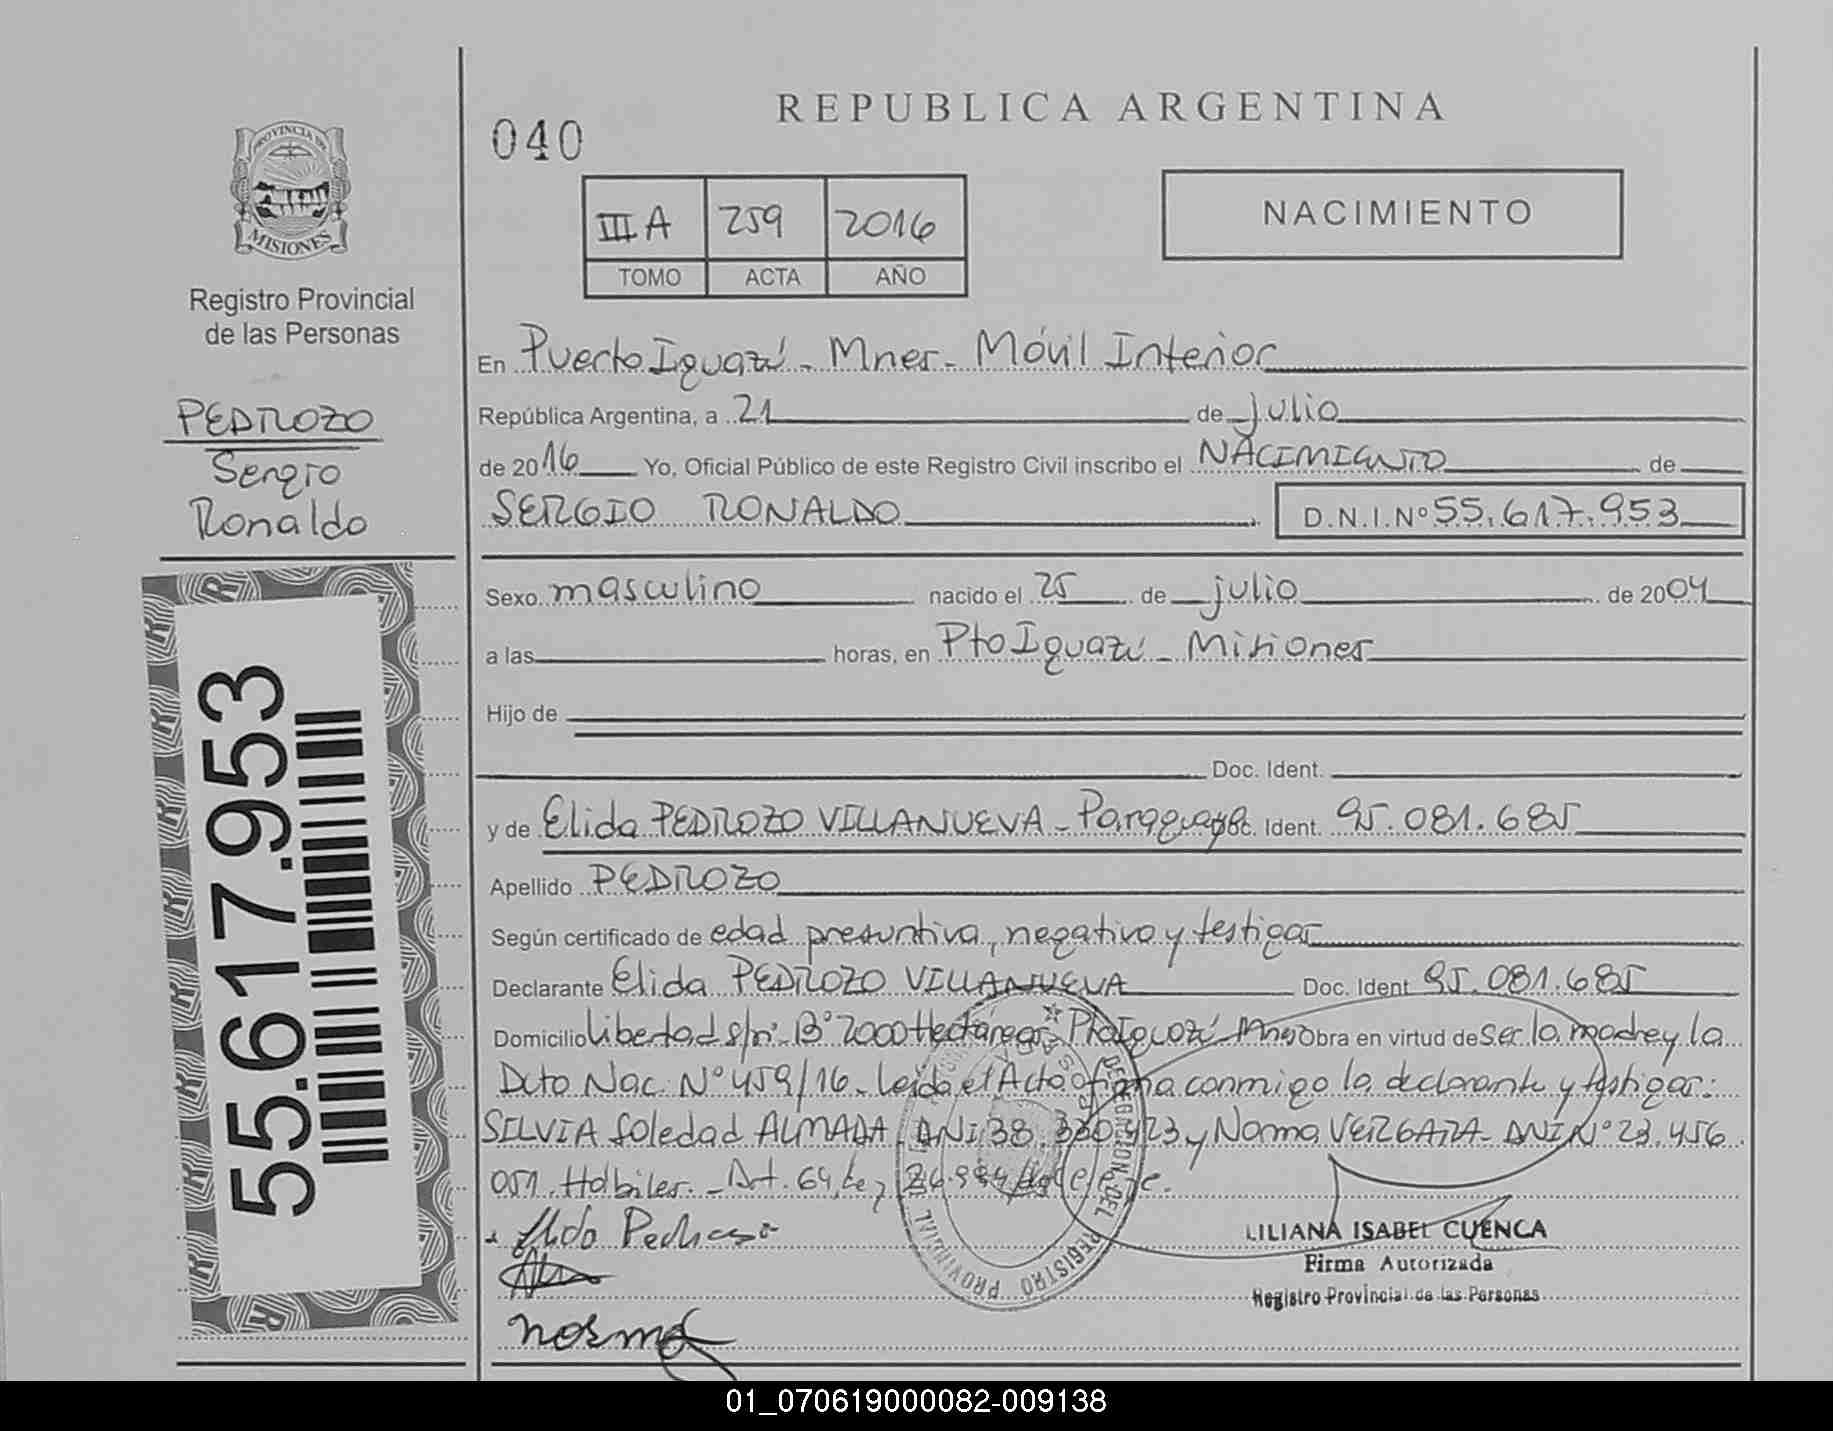 PROVINCIA DE
MISIONES
Registro Provincial
de las Personas
PEDROZO
Sergio
Ronaldo
55.617.953
REPUBLICA ARGENTINA
040
III A 259 2016
TOMO ACTA AÑO
NACIMIENTO
En Puerto Iguazú - Mnes - Móvil Interior
República Argentina, a 21 de julio
de 2016 Yo, Oficial Público de este Registro Civil inscribo el NACIMIENTO de
SERGIO RONALDO D.N.I.Nº 55.617.953
Sexo masculino nacido el 25 de julio de 2004
a las horas, en Pto Iguazú - Misiones
Hijo de
Doc. Ident.
y de Elida PEDROZO VILLANUEVA - Paraguaya Doc. Ident. 95.081.685
Apellido PEDROZO
Según certificado de edad presuntiva, negativo y testigos
Declarante Elida PEDROZO VILLANUEVA Doc. Ident. 95.081.685
Domicilio Libertad s/nº - Bº 2000 Hectáreas - Pto Iguazú - Mnes Obra en virtud de ser la madre y la
Dcto Nac. Nº 459/16 - Leída el Acta firma conmigo la declarante y testigos:
SILVIA Soledad ALMADA - DNI 38.380.423 y Norma VERGARA - DNI Nº 23.456
051. Hábiles. - Art. 64, Ley 26.994
Elida Pedrozo
Norma
REGISTRO PROVINCIAL
LILIANA ISABEL CUENCA
Firma Autorizada
Registro Provincial de las Personas
01_070619000082-009138